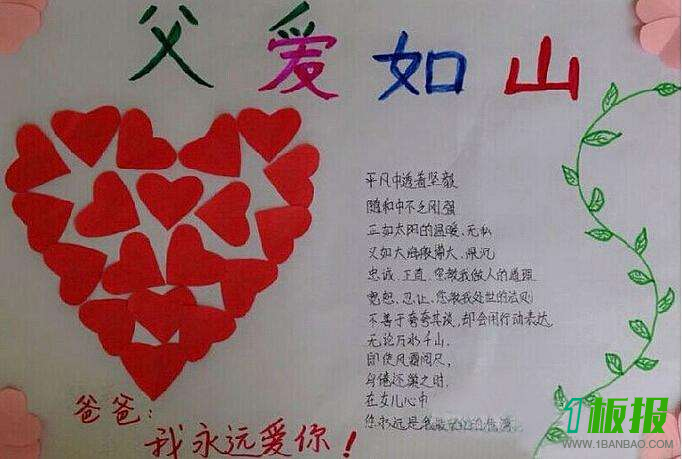 父爱如山
平凡中透着坚毅
随和中不乏刚强
正如太阳的温暖、无私
又如大海般博大、深沉
忠诚、正直、您教我做人的道理
宽恕、忍让、您教我处世的法则
不善于夸夸其谈,却会用行动表达
无论万水千山,
即使风霜
乌倦还巢之时,
在女儿心中
您永远是我
爸爸:
我永远爱你!
1板报
WWW.1BANBAO.COM